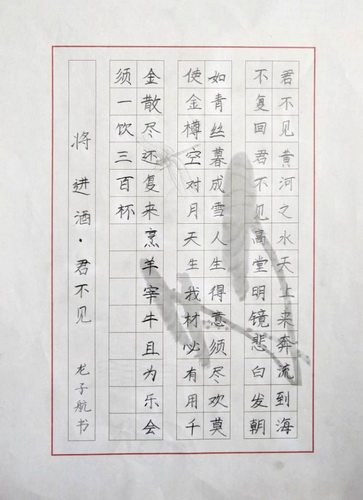 君不见黄河之水天上来奔流到海
不复回君不见高堂明镜悲白发朝
如青丝暮成雪人生得意须尽欢莫
使金樽空对月天生我材必有用千
金散尽还复来烹羊宰牛且为乐会
须一饮三百杯
将进酒·君不见 龙子航书